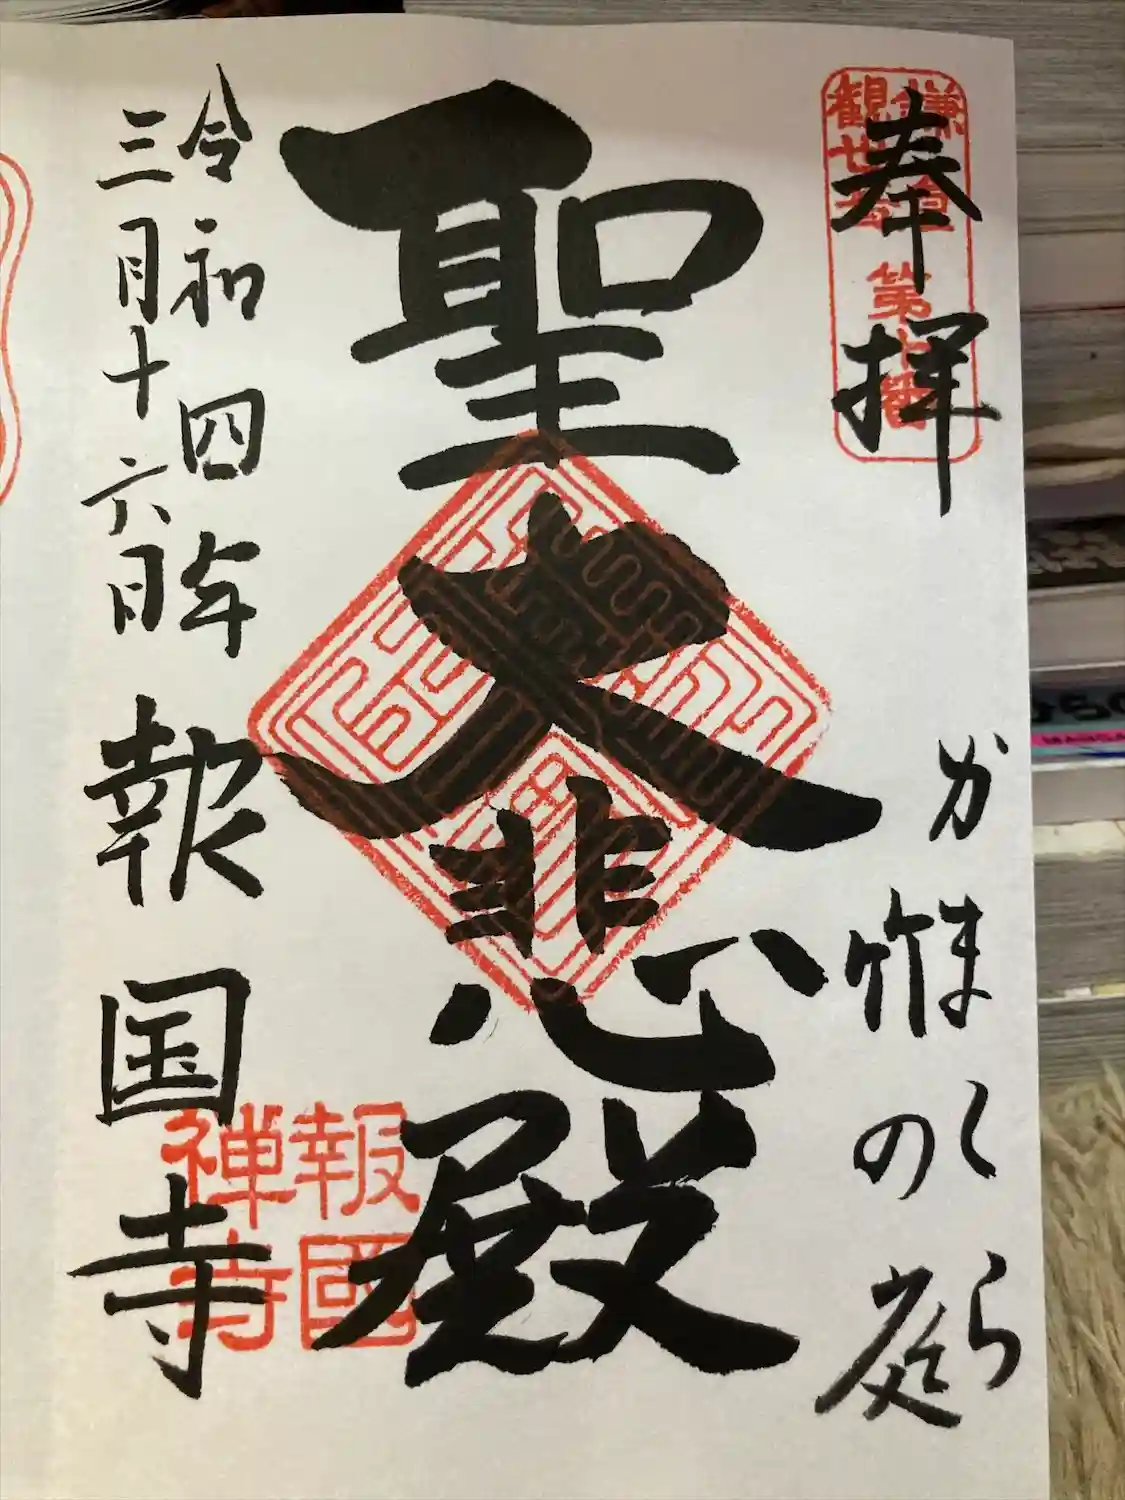 奉拝
鎌倉
観世音
第十番
かまくら
竹の庭
聖大悲殿
報國
禅寺
令和四年
三月十六日
報国寺